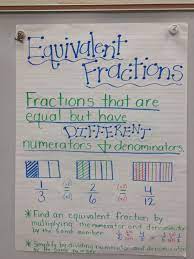 Equivalent
Fractions
Fractions that are
equal but have
DIFFERENT
numerators & denominators.
1/3 2/6 4/12
* Find an equivalent fraction by
multiplying the numerator and denominator
by the same number
* Simplify by dividing numerator and denominator
by the same number